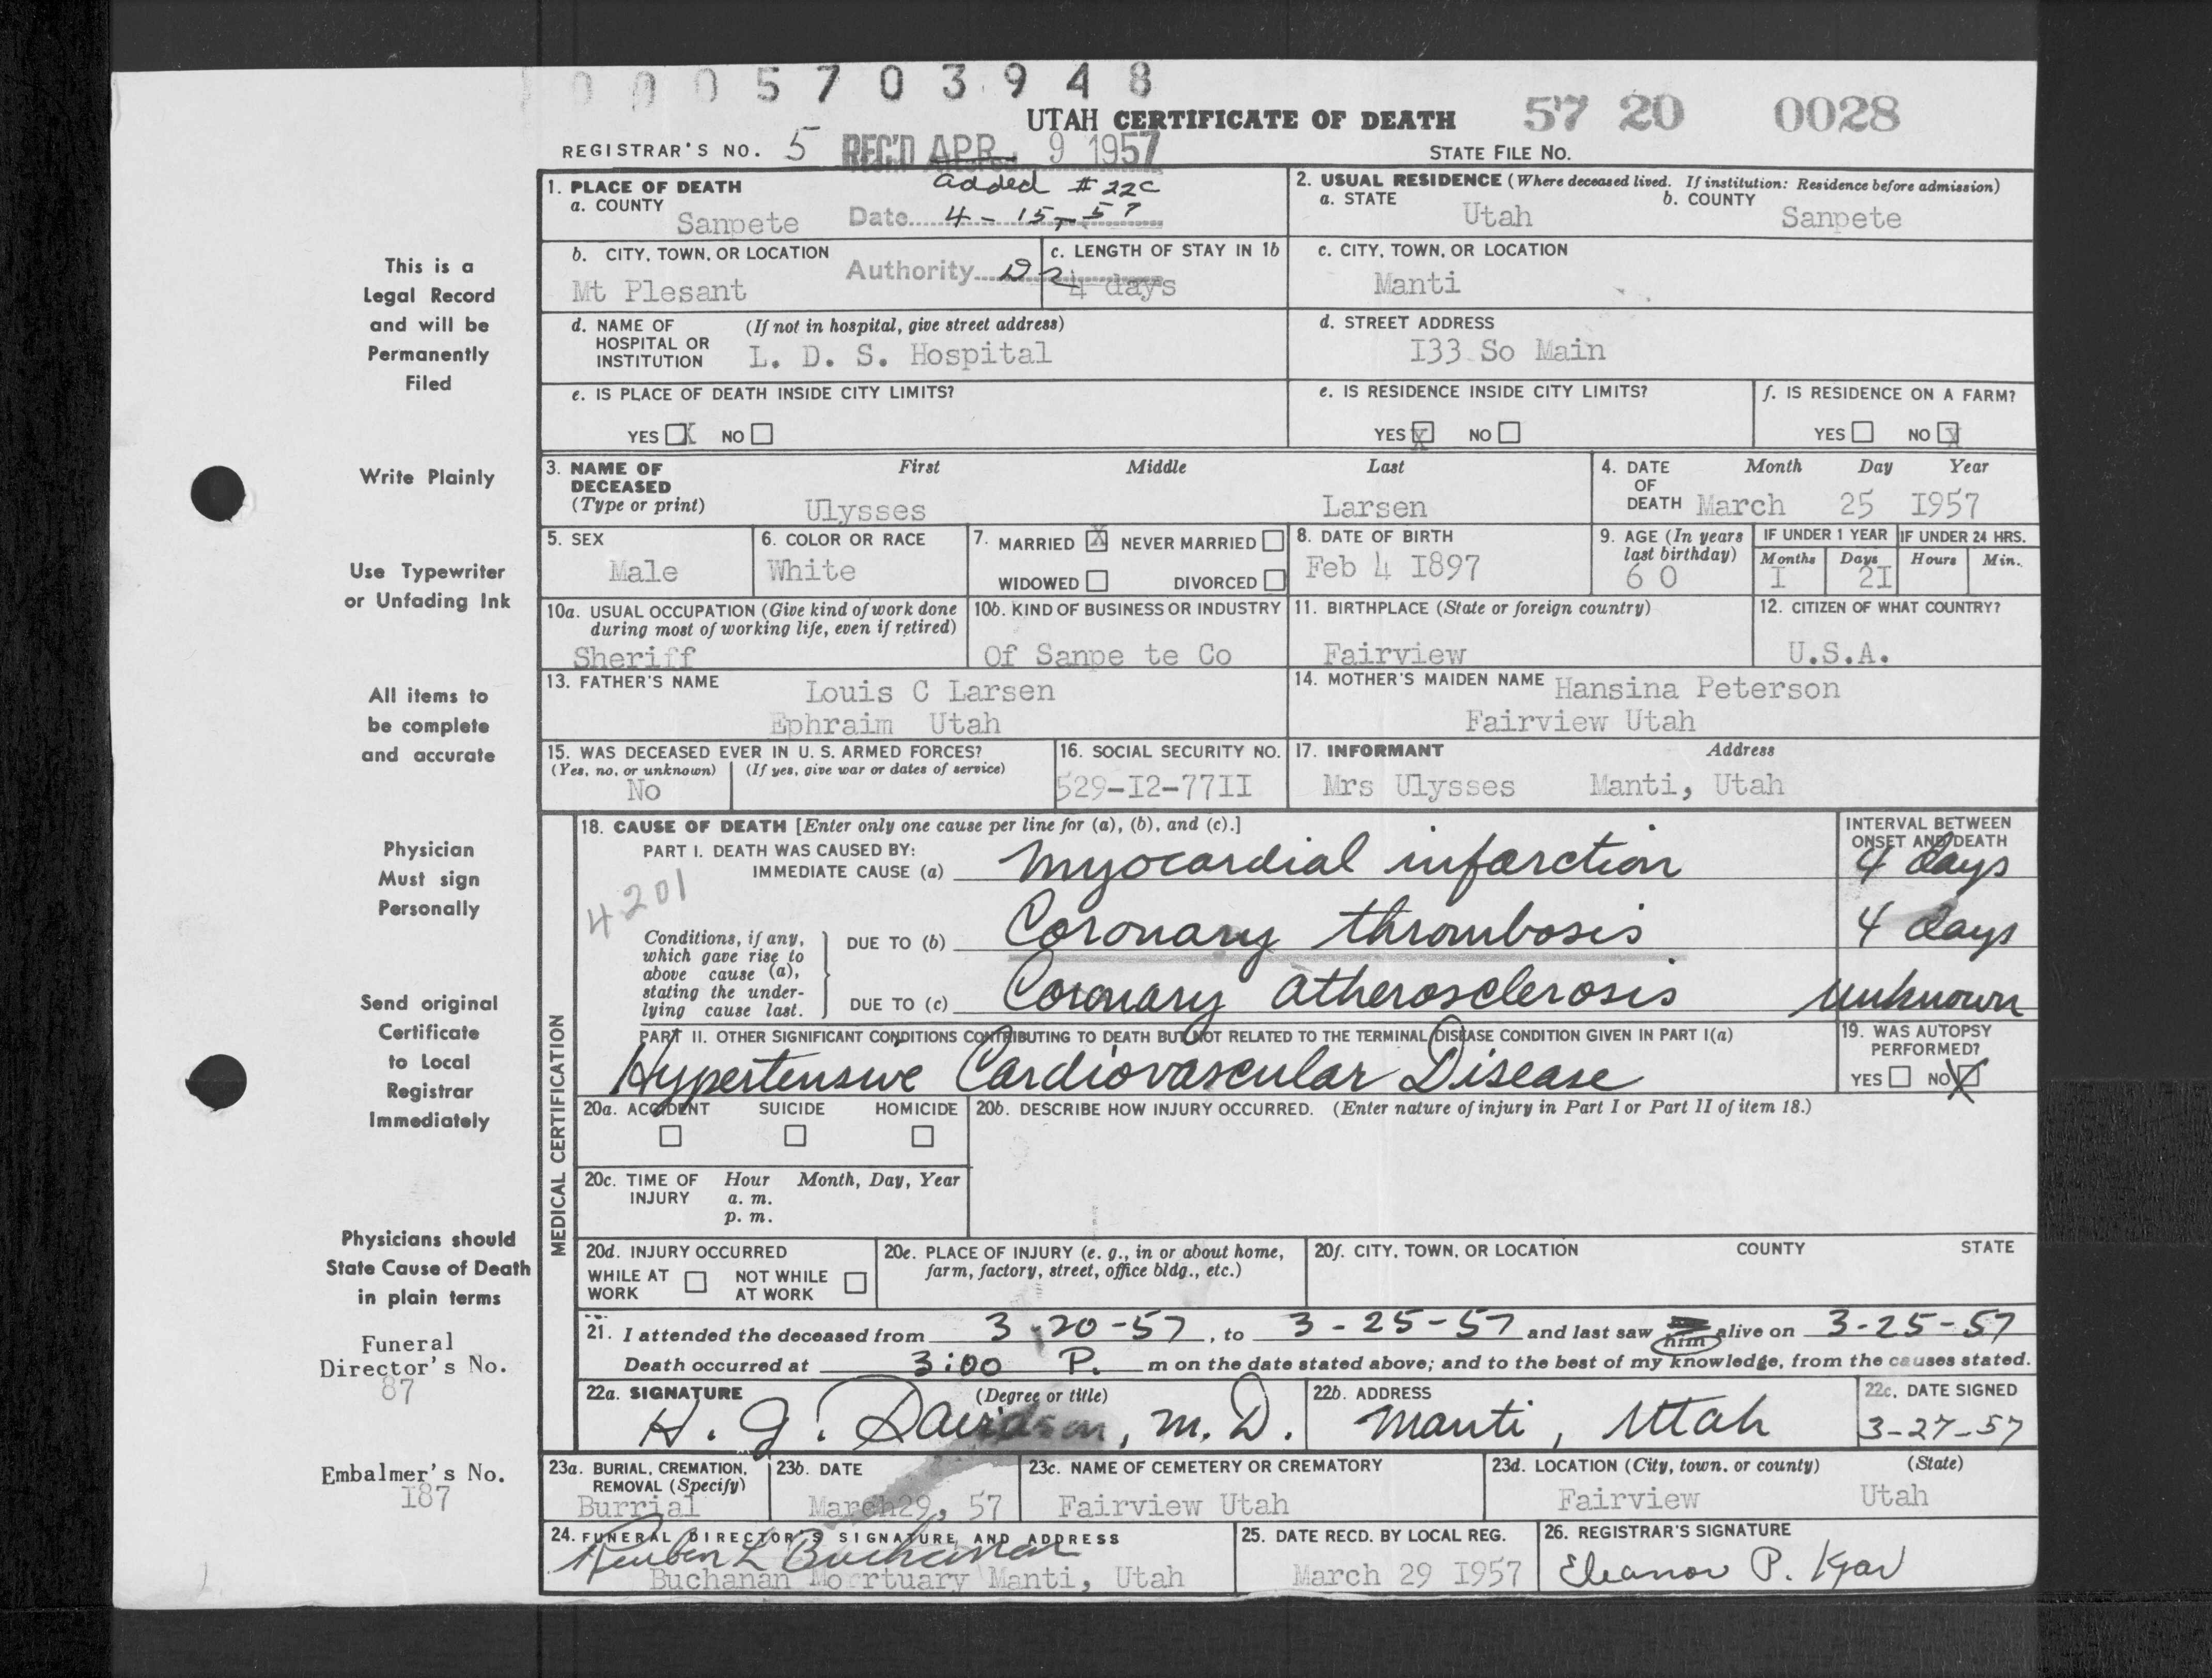 0005703948
UTAH CERTIFICATE OF DEATH 57 20 0028
REGISTRAR'S NO. 5 REC'D APR 9 1957 STATE FILE NO.
1. PLACE OF DEATH added #22c
a. COUNTY Sanpete Date 4-15-57
2. USUAL RESIDENCE (Where deceased lived. If institution: Residence before admission)
a. STATE Utah b. COUNTY Sanpete
b. CITY, TOWN, OR LOCATION Mt Plesant Authority
c. LENGTH OF STAY IN 1b 4 days
c. CITY, TOWN, OR LOCATION Manti
d. NAME OF HOSPITAL OR INSTITUTION (If not in hospital, give street address)
L. D. S. Hospital
d. STREET ADDRESS
I33 So Main
e. IS PLACE OF DEATH INSIDE CITY LIMITS?
YES X NO
e. IS RESIDENCE INSIDE CITY LIMITS?
YES X NO
f. IS RESIDENCE ON A FARM?
YES NO X
3. NAME OF DECEASED (Type or print) First Middle Last
Ulysses Larsen
4. DATE OF DEATH Month Day Year
March 25 I957
5. SEX
Male
6. COLOR OR RACE
White
7. MARRIED X NEVER MARRIED
WIDOWED DIVORCED
8. DATE OF BIRTH
Feb 4 I897
9. AGE (In years last birthday)
60
IF UNDER 1 YEAR IF UNDER 24 HRS.
Months Days Hours Min.
I 2I
10a. USUAL OCCUPATION (Give kind of work done during most of working life, even if retired)
Sheriff
10b. KIND OF BUSINESS OR INDUSTRY
Of Sanpe te Co
11. BIRTHPLACE (State or foreign country)
Fairview
12. CITIZEN OF WHAT COUNTRY?
U.S.A.
13. FATHER'S NAME Louis C Larsen
Ephraim Utah
14. MOTHER'S MAIDEN NAME Hansina Peterson
Fairview Utah
15. WAS DECEASED EVER IN U. S. ARMED FORCES?
(Yes, no, or unknown) (If yes, give war or dates of service)
No
16. SOCIAL SECURITY NO.
529-I2-77II
17. INFORMANT Address
Mrs Ulysses Manti, Utah
MEDICAL CERTIFICATION
18. CAUSE OF DEATH [Enter only one cause per line for (a), (b), and (c).]
INTERVAL BETWEEN ONSET AND DEATH
PART I. DEATH WAS CAUSED BY:
IMMEDIATE CAUSE (a) Myocardial infarction 4 days
4201
Conditions, if any, which gave rise to above cause (a), stating the underlying cause last.
DUE TO (b) Coronary thrombosis 4 days
DUE TO (c) Coronary atherosclerosis unknown
PART II. OTHER SIGNIFICANT CONDITIONS CONTRIBUTING TO DEATH BUT NOT RELATED TO THE TERMINAL DISEASE CONDITION GIVEN IN PART I(a)
Hypertensive Cardiovascular Disease
19. WAS AUTOPSY PERFORMED?
YES NO X
20a. ACCIDENT SUICIDE HOMICIDE
20b. DESCRIBE HOW INJURY OCCURRED. (Enter nature of injury in Part I or Part II of item 18.)
20c. TIME OF INJURY Hour Month, Day, Year
a. m.
p. m.
20d. INJURY OCCURRED
WHILE AT WORK NOT WHILE AT WORK
20e. PLACE OF INJURY (e. g., in or about home, farm, factory, street, office bldg., etc.)
20f. CITY, TOWN, OR LOCATION COUNTY STATE
21. I attended the deceased from 3-20-57, to 3-25-57 and last saw him alive on 3-25-57
Death occurred at 3:00 P. m on the date stated above; and to the best of my knowledge, from the causes stated.
22a. SIGNATURE (Degree or title)
H. G. Davidson, M.D.
22b. ADDRESS
Manti, Utah
22c. DATE SIGNED
3-27-57
23a. BURIAL, CREMATION, REMOVAL (Specify)
Burrial
23b. DATE
March29, 57
23c. NAME OF CEMETERY OR CREMATORY
Fairview Utah
23d. LOCATION (City, town, or county) (State)
Fairview Utah
24. FUNERAL DIRECTOR'S SIGNATURE AND ADDRESS
Reuben L Buchanan
Buchanan Morrtuary Manti, Utah
25. DATE RECD. BY LOCAL REG.
March 29 I957
26. REGISTRAR'S SIGNATURE
Eleanor P. Kjar
This is a
Legal Record
and will be
Permanently
Filed
Write Plainly
Use Typewriter
or Unfading Ink
All items to
be complete
and accurate
Physician
Must sign
Personally
Send original
Certificate
to Local
Registrar
Immediately
Physicians should
State Cause of Death
in plain terms
Funeral
Director's No.
87
Embalmer's No.
I87